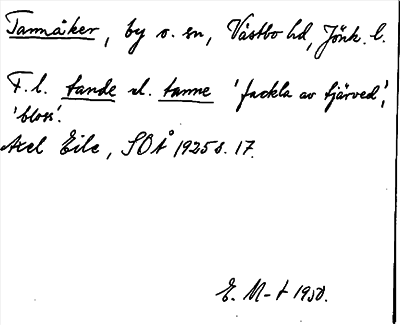 Tannåker, by o. sn, Västbo hd, Jönk. l.
F. l. tande el. tanne 'fackla av tjärved',
'bloss'.
Axel Eile, SOÅ 1925 s. 17.
E. M-t 1950.